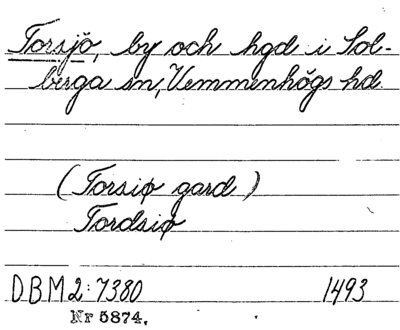 Torsjö, by och hgd i Sol-
berga sn, Vemmenhögs hd.
(Torsiø gard)
Tordsiø
DBM 2:7380 1493
Nr 5874.